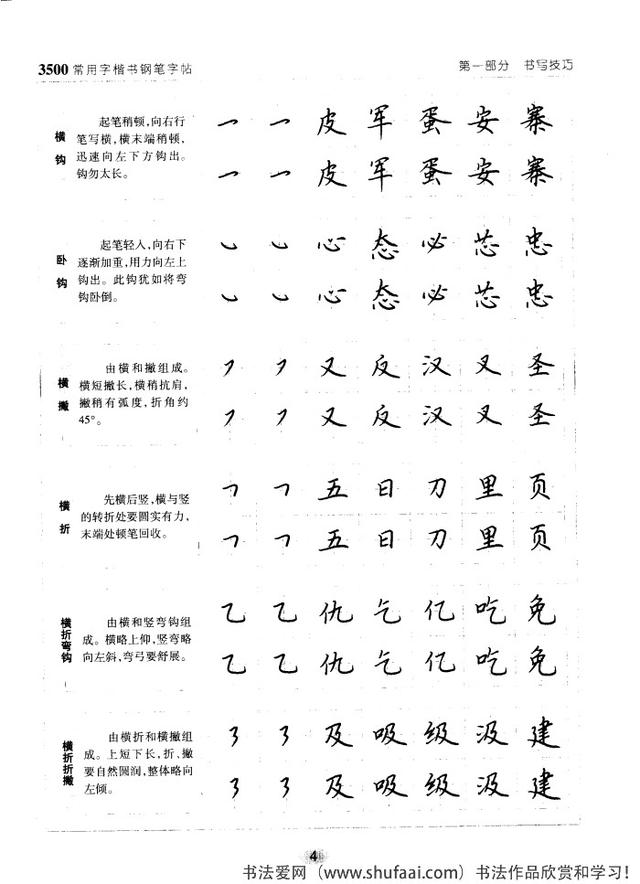 3500 常用字楷书钢笔字帖 第一部分 书写技巧
横钩
起笔稍顿,向右行
笔写横,横末端稍顿,
迅速向左下方钩出。
钩勿太长。
㇖ ㇖ 皮 军 蛋 安 寨
㇖ ㇖ 皮 军 蛋 安 寨
卧钩
起笔轻入,向右下
逐渐加重,用力向左上
钩出。此钩犹如将弯
钩卧倒。
㇃ ㇃ 心 态 必 芯 忠
㇃ ㇃ 心 态 必 芯 忠
横撇
由横和撇组成。
横短撇长,横稍抗肩,
撇稍有弧度,折角约
45°。
㇇ ㇇ 又 反 汉 叉 圣
㇇ ㇇ 又 反 汉 叉 圣
横折
先横后竖,横与竖
的转折处要圆实有力,
末端处顿笔回收。
㇕ ㇕ 五 日 刀 里 页
㇕ ㇕ 五 日 刀 里 页
横折弯钩
由横和竖弯钩组
成。横略上仰,竖弯略
向左斜,弯弓要舒展。
乙 乙 仇 乞 亿 吃 免
乙 乙 仇 乞 亿 吃 免
横折折撇
由横折和横撇组
成。上短下长,折、撇
要自然圆润,整体略向
左倾。
㇋ ㇋ 及 吸 级 汲 建
㇋ ㇋ 及 吸 级 汲 建
4
书法爱网（www.shufaai.com）书法作品欣赏和学习!